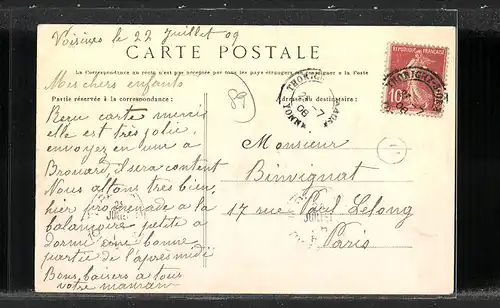 Voisines le 22 Juillet 09
CARTE POSTALE
La Correspondance au recto n'est pas acceptée par tous les pays étrangers. Se renseigner à la Poste
Mes chers enfants
Partie réservée à la correspondance
Beau carte merci
elle est très jolie,
envoyez en une à
Brouard, il sera content
Nous allons tres bien,
hier promenade a la
balançoire petite a
dormi une bonne
partie de l'après midi
Bons baisers a tous
votre maman
89
Adresse du destinataire
THORIGNY
YONNE
REPUBLIQUE FRANÇAISE
10
Monsieur
Binvignat
17 rue Paul Lelong
Paris